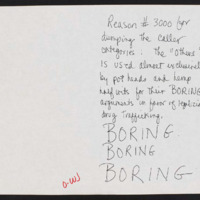 Reason # 3000 for
dumping the caller
categories: The "Others"
is used almost exclusively
by pot heads and hemp
halfwits for their "BORING"
arguments in favor of legalizing
drug trafficking.
BORING.
BORING
BORING